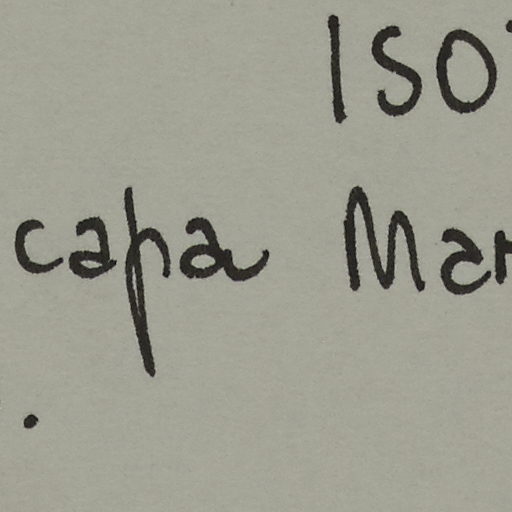 ISO
capa Mar
.